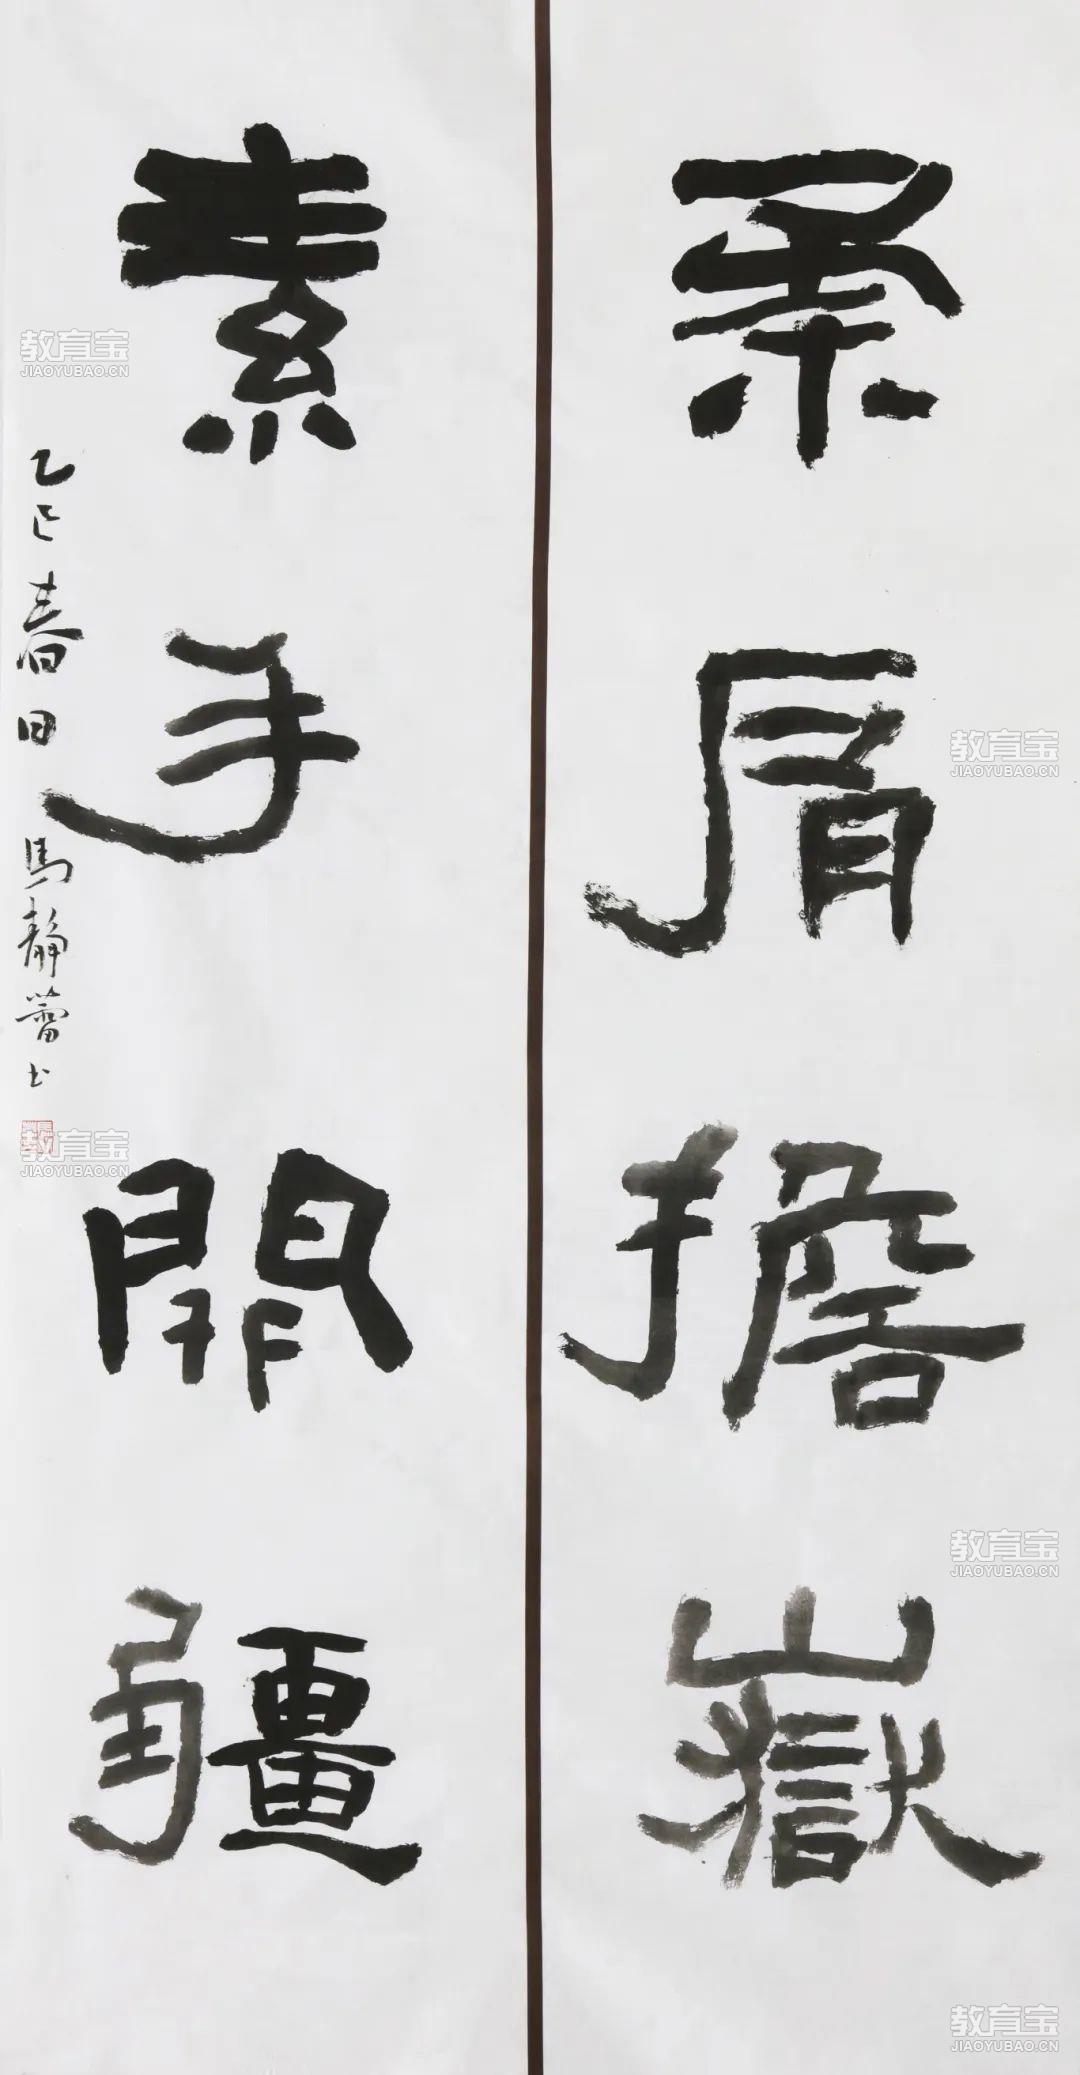 柔肩擔嶽
素手開疆
乙巳春日馬靜蕾书
教育宝
JIAOYUBAO.CN
教育宝
JIAOYUBAO.CN
教育宝
JIAOYUBAO.CN
教育宝
JIAOYUBAO.CN
教育宝
JIAOYUBAO.CN